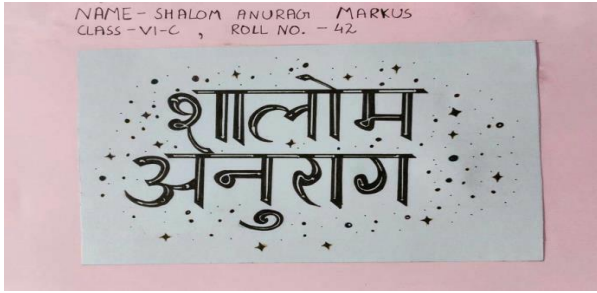 NAME- SHALOM ANURAG MARKUS
CLASS-VI-C , ROLL NO. - 42
शालोम
अनुराग